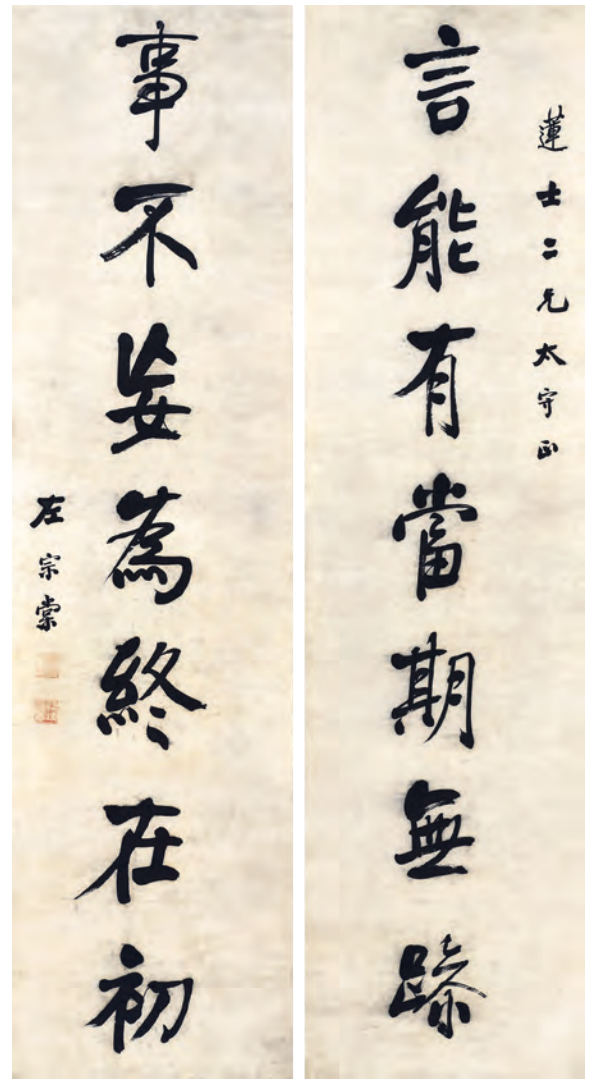 蓮士二兄太守正
言能有當期無跡
事不妄為終在初
左宗棠